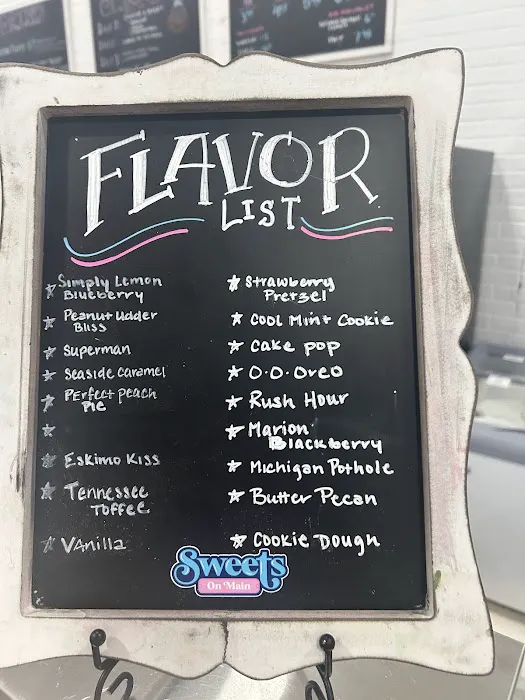 FLAVOR
LIST
Simply Lemon
Blueberry
Peanut Udder
Bliss
Superman
Seaside Caramel
Perfect Peach
Pie
Eskimo Kiss
Tennessee
Toffee
Vanilla
Strawberry
Pretzel
Cool Mint Cookie
Cake pop
O.O.Oreo
Rush Hour
Marion
Blackberry
Michigan Pothole
Butter Pecan
Cookie Dough
Sweets
On Main